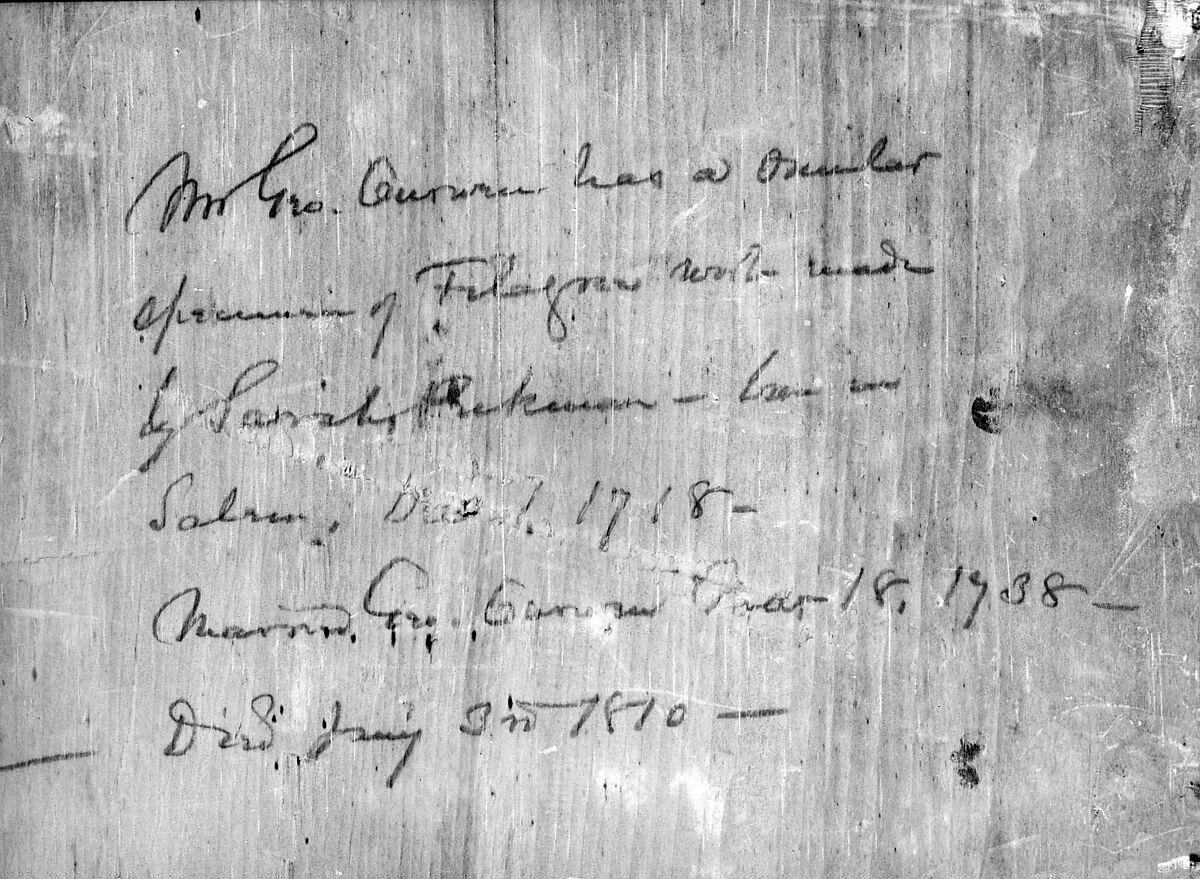 Mr Geo. Curwen has a similar
specimen of Filagree work made
by Sarah Pickman – born in
Salem, Dec 1, 1718 –
Married Geo. Curwen 18, 1738 –
Died 3rd 1810 –